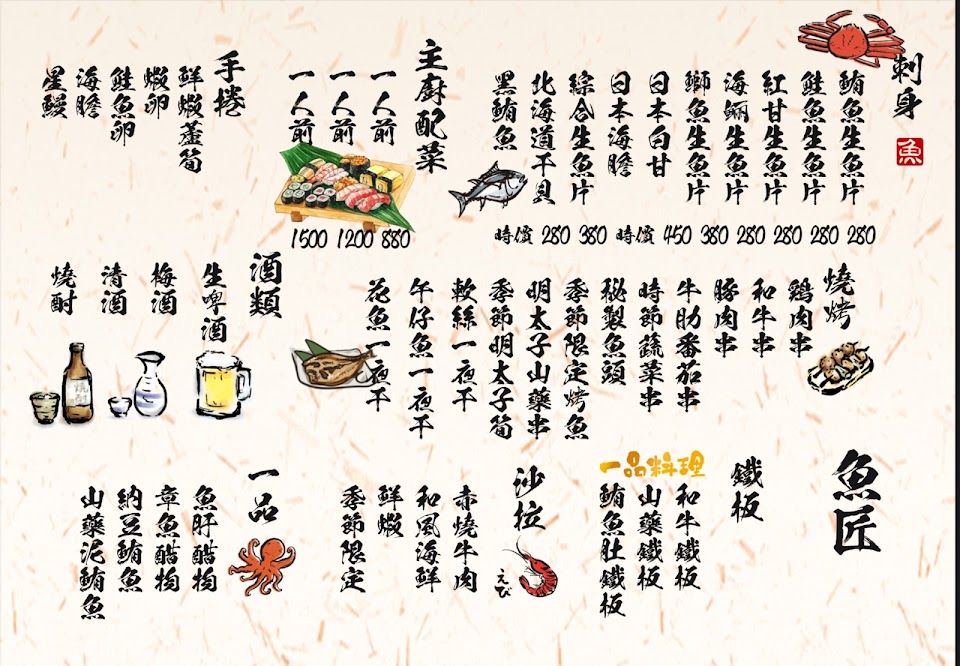 刺身
魚
鮪魚生魚片 280
鮭魚生魚片 280
紅甘生魚片 280
海鱺生魚片 280
鰤魚生魚片 380
日本白甘 450
日本海膽 時價
綜合生魚片 380
北海道干貝 280
黑鮪魚 時價
主廚配菜
一人前 880
一人前 1200
一人前 1500
手捲
鮮蝦蘆筍
蝦卵
鮭魚卵
海膽
星鰻
燒烤
鷄肉串
和牛串
豚肉串
牛肋番茄串
時節蔬菜串
秘製魚頭
季節限定烤魚
明太子山藥串
季節明太子筍
軟絲一夜干
午仔魚一夜干
花魚一夜干
酒類
生啤酒
梅酒
清酒
燒酎
魚匠
鐵板
一品料理
和牛鐵板
山藥鐵板
鮪魚肚鐵板
沙拉
えび
赤燒牛肉
和風海鮮
鮮蝦
季節限定
一品
魚肝醋物
章魚醋物
納豆鮪魚
山藥泥鮪魚